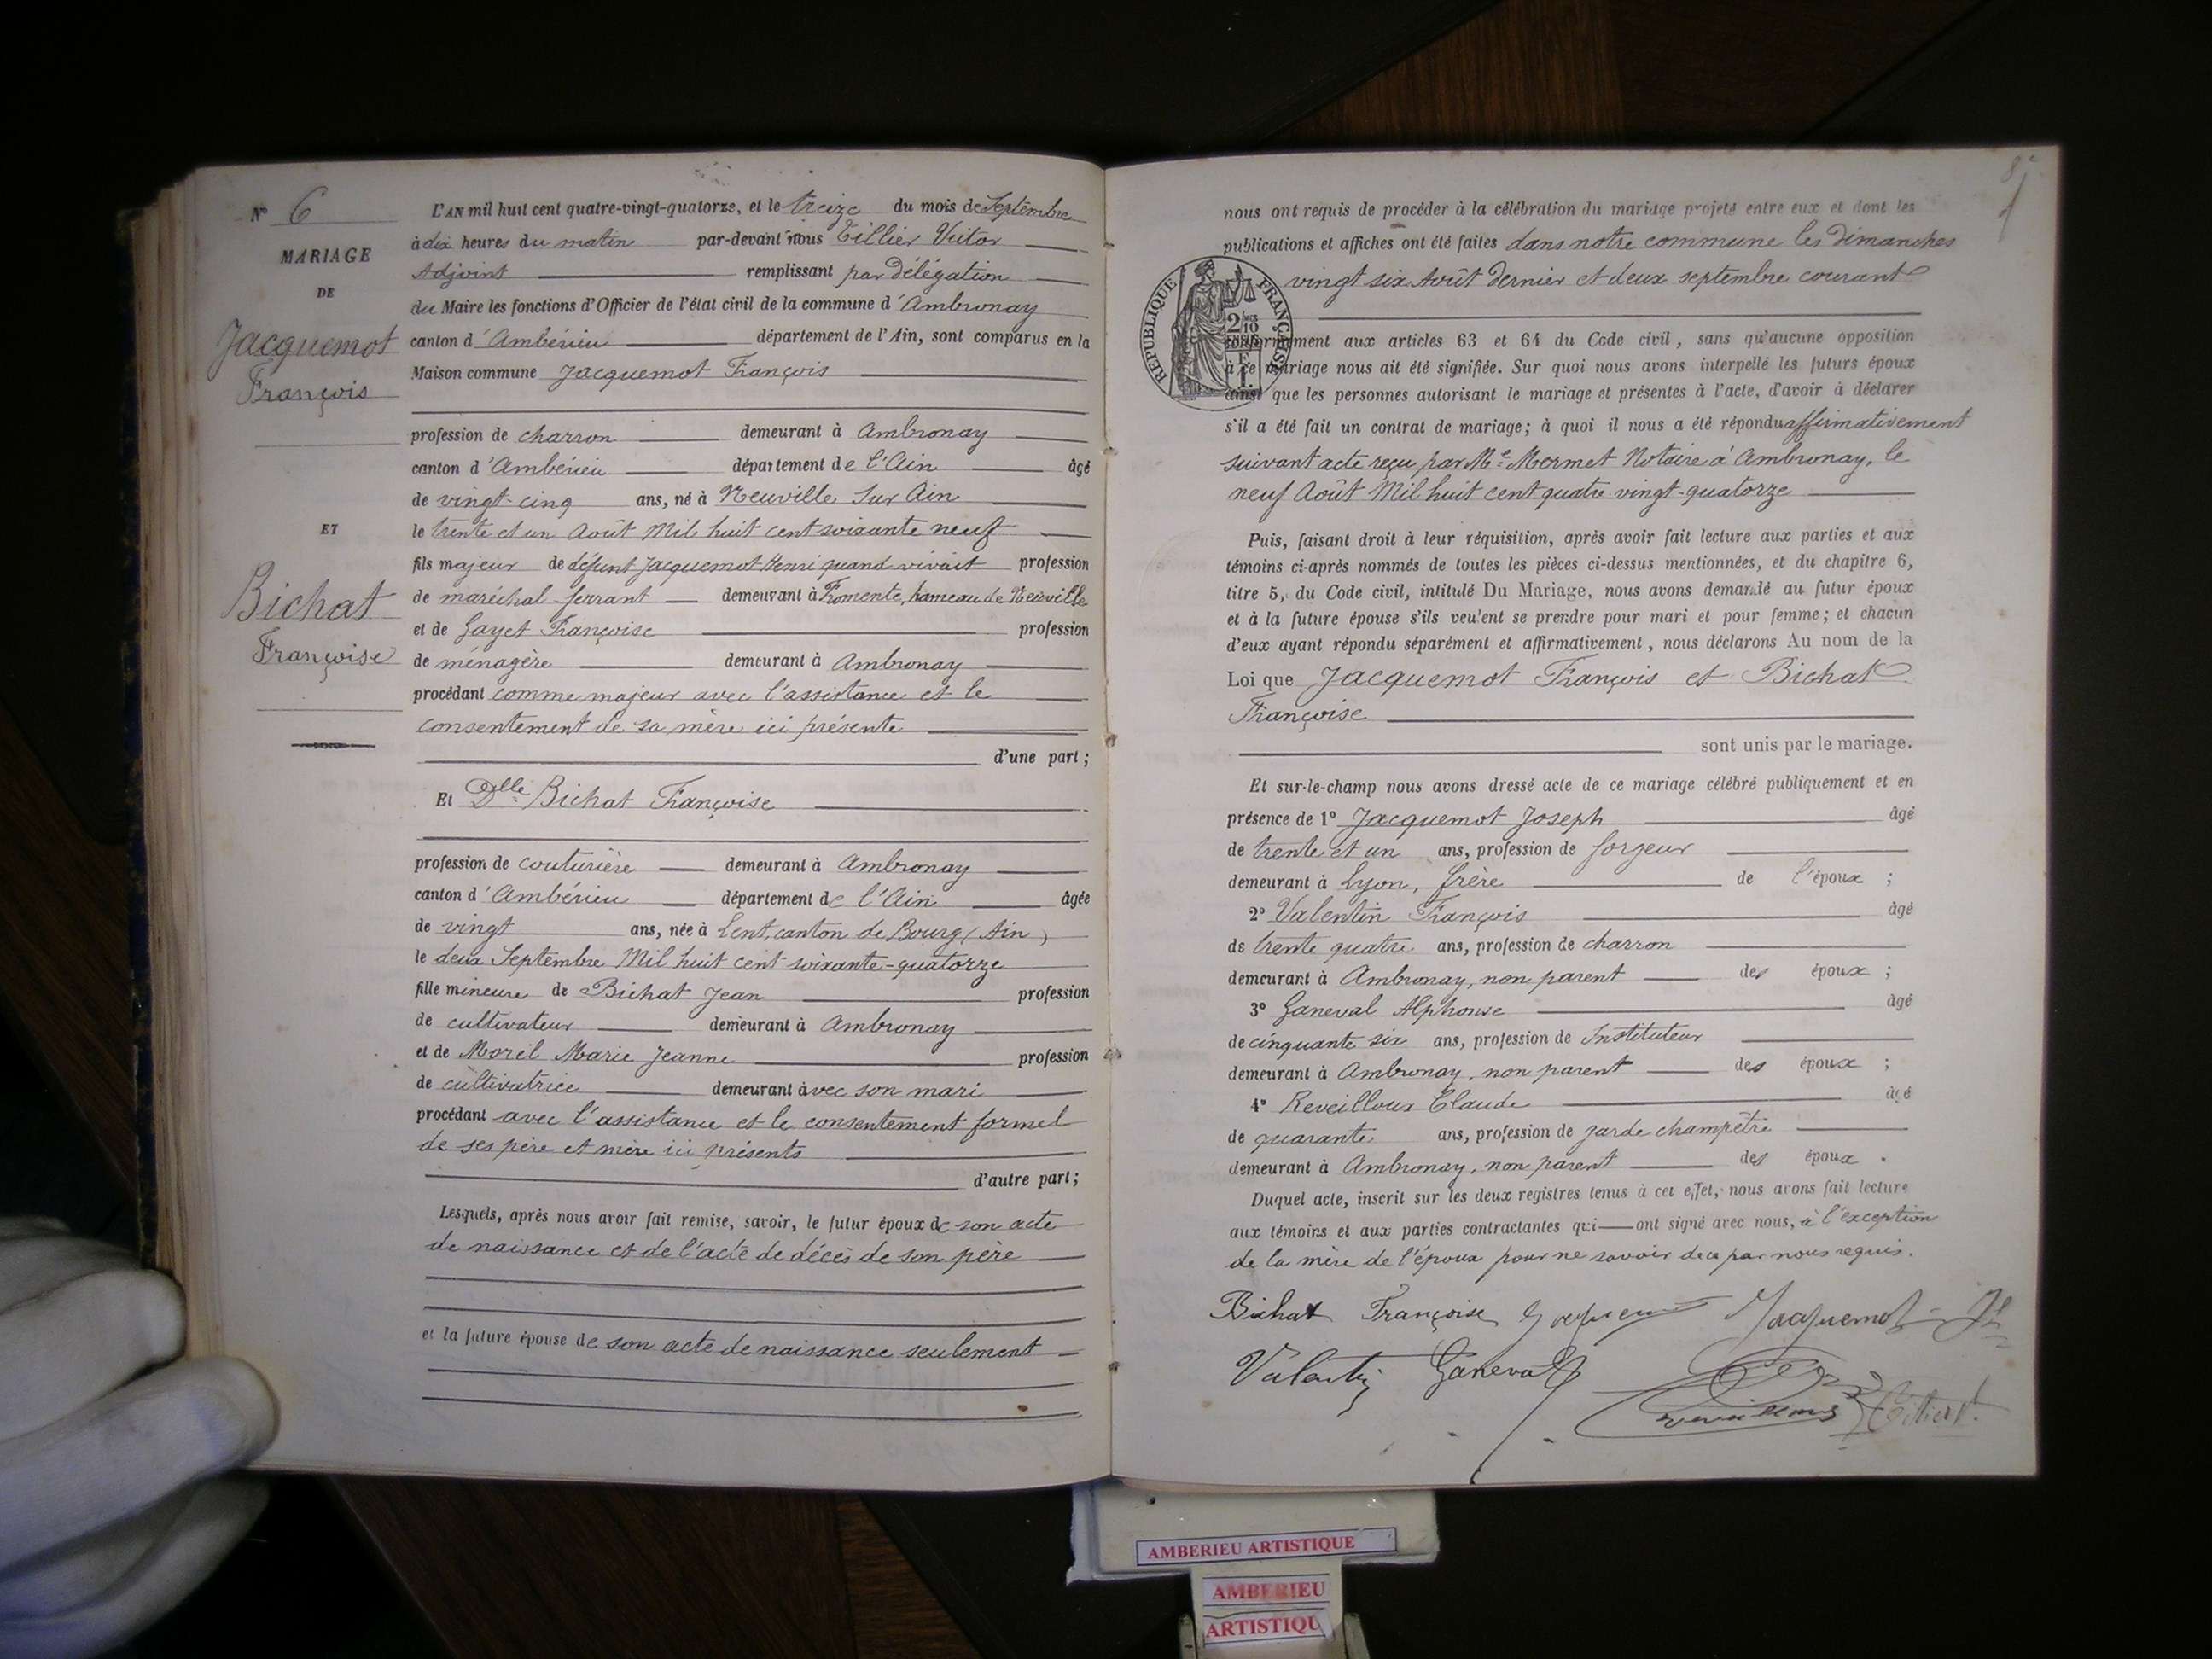 N° 6
MARIAGE
DE
Jacquemot
François
ET
Bichat
Françoise
L'AN mil huit cent quatre-vingt-quatorze, et le treize du mois de Septembre
à dix heures du matin par-devant nous Tillier Victor
Adjoint remplissant par délégation
du Maire les fonctions d'Officier de l'état civil de la commune d'Ambronay
canton d'Ambérieu département de l'Ain, sont comparus en la
Maison commune Jacquemot François
profession de charron demeurant à Ambronay
canton d'Ambérieu département de l'Ain âgé
de vingt-cinq ans, né à Neuville sur Ain
le trente et un Août Mil huit cent soixante neuf
fils majeur de défunt Jacquemot Henri quand vivait profession
de maréchal-ferrant demeurant à Fromente, hameau de Neuville
et de Gayet Françoise profession
de ménagère demeurant à Ambronay
procédant comme majeur avec l'assistance et le
consentement de sa mère ici présente
d'une part;
Et Dlle Bichat Françoise
profession de couturière demeurant à Ambronay
canton d'Ambérieu département de l'Ain âgée
de vingt ans, née à Lent, canton de Bourg (Ain)
le deux Septembre Mil huit cent soixante-quatorze
fille mineure de Bichat Jean profession
de cultivateur demeurant à Ambronay
et de Morel Marie Jeanne profession
de cultivatrice demeurant avec son mari
procédant avec l'assistance et le consentement formel
de ses père et mère ici présents
d'autre part;
Lesquels, après nous avoir fait remise, savoir, le futur époux de son acte
de naissance et de l'acte de décès de son père
et la future épouse de son acte de naissance seulement
8e
nous ont requis de procéder à la célébration du mariage projeté entre eux et dont les
publications et affiches ont été faites dans notre commune les dimanches
vingt six Août dernier et deux septembre courant
RÉPUBLIQUE FRANÇAISE
conformément aux articles 63 et 64 du Code civil, sans qu'aucune opposition
à ce mariage nous ait été signifiée. Sur quoi nous avons interpellé les futurs époux
ainsi que les personnes autorisant le mariage et présentes à l'acte, d'avoir à déclarer
s'il a été fait un contrat de mariage; à quoi il nous a été répondu affirmativement
suivant acte reçu par Me Mermet Notaire à Ambronay, le
neuf Août Mil huit cent quatre vingt-quatorze
Puis, faisant droit à leur réquisition, après avoir fait lecture aux parties et aux
témoins ci-après nommés de toutes les pièces ci-dessus mentionnées, et du chapitre 6,
titre 5, du Code civil, intitulé Du Mariage, nous avons demandé au futur époux
et à la future épouse s'ils veulent se prendre pour mari et pour femme; et chacun
d'eux ayant répondu séparément et affirmativement, nous déclarons Au nom de la
Loi que Jacquemot François et Bichat
Françoise
sont unis par le mariage.
Et sur-le-champ nous avons dressé acte de ce mariage célébré publiquement et en
présence de 1° Jacquemot Joseph âgé
de trente et un ans, profession de forgeur
demeurant à Lyon, frère de l'époux ;
2° Valentin François âgé
de trente quatre ans, profession de charron
demeurant à Ambronay, non parent des époux ;
3° Ganeval Alphonse âgé
de cinquante six ans, profession de Instituteur
demeurant à Ambronay, non parent des époux ;
4° Reveilloux Claude âgé
de quarante ans, profession de garde champêtre
demeurant à Ambronay, non parent des époux.
Duquel acte, inscrit sur les deux registres tenus à cet effet, nous avons fait lecture
aux témoins et aux parties contractantes qui ont signé avec nous, à l'exception
de la mère de l'époux pour ne savoir de ce par nous requis.
Bichat Françoise Jacquemot
Valentin Ganeval
Reveilloux Tillier
AMBERIEU ARTISTIQUE
AMBERIEU
ARTISTIQU